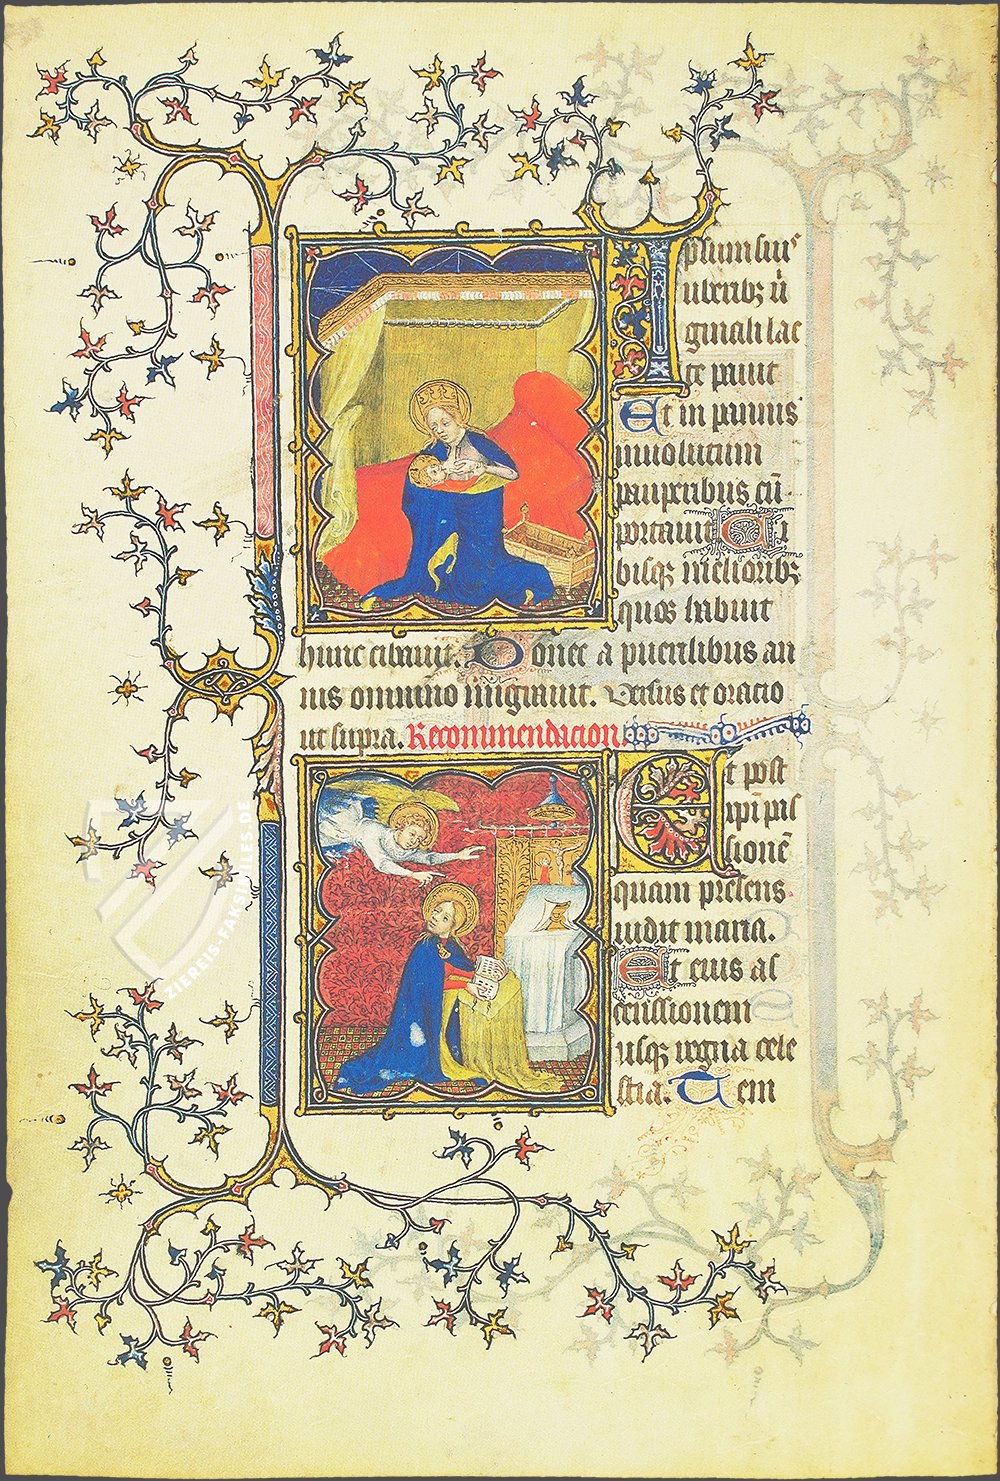 Ipsum suis
uberibꝫ ui
ginali lac
te pauit
Et in pannis
inuolutum
pauperibus cū
portauit Ci
bisqꝫ melioribꝫ
quos habuit
hunc cibauit. Donec a puerilibus an
nis omnino migrauit. Versus et oracio
ut supra. Recommendacion
Et post
xp̄i pas
sionē
quam presens
uidit maria.
Et eius as
censsionem
usqꝫ regna cele
stia. Tem
ZIEREIS-FAKSIMILES.DE